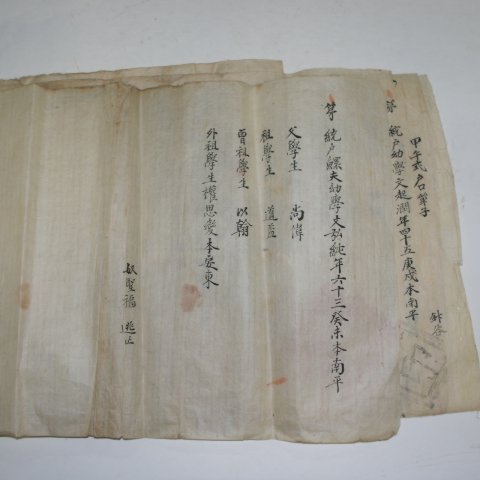 甲午式戶口單子
第 統戶幼學文起潤年四十五庚戌本南平
第 統戶鰥夫幼學文弘純年六十三癸未本南平
父學生 尙偉
祖學生 道益
曾祖學生 以翰
外祖學生權思燮本安東
奴聖福 逃亡